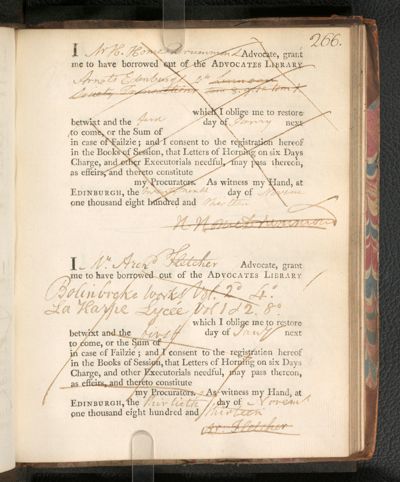 266.
I Mr H. Home Drummond Advocate, grant
me to have borrowed out of the ADVOCATES LIBRARY
Arnots Edinburgh
Society Transactions
which I oblige me to restore
betwixt and the first day of Janry next
to come, or the Sum of
in case of Failzie; and I consent to the registration hereof
in the Books of Session, that Letters of Horning on six Days
Charge, and other Executorials needful, may pass thereon,
as effeirs, and thereto constitute
my Procurators. As witness my Hand, at
EDINBURGH, the day of Novem
one thousand eight hundred and thirteen
H Home Drummond
I Mr Archd Fletcher Advocate, grant
me to have borrowed out of the ADVOCATES LIBRARY
Bolinbroke Works Vol. 2d 4o.
La Harpe Lycée Vol 1 & 2. 8o
which I oblige me to restore
betwixt and the first day of Jany next
to come, or the Sum of
in case of Failzie; and I consent to the registration hereof
in the Books of Session, that Letters of Horning on six Days
Charge, and other Executorials needful, may pass thereon,
as effeirs, and thereto constitute
my Procurators. As witness my Hand, at
EDINBURGH, the thirtieth day of Novemr
one thousand eight hundred and thirteen
Ar. Fletcher